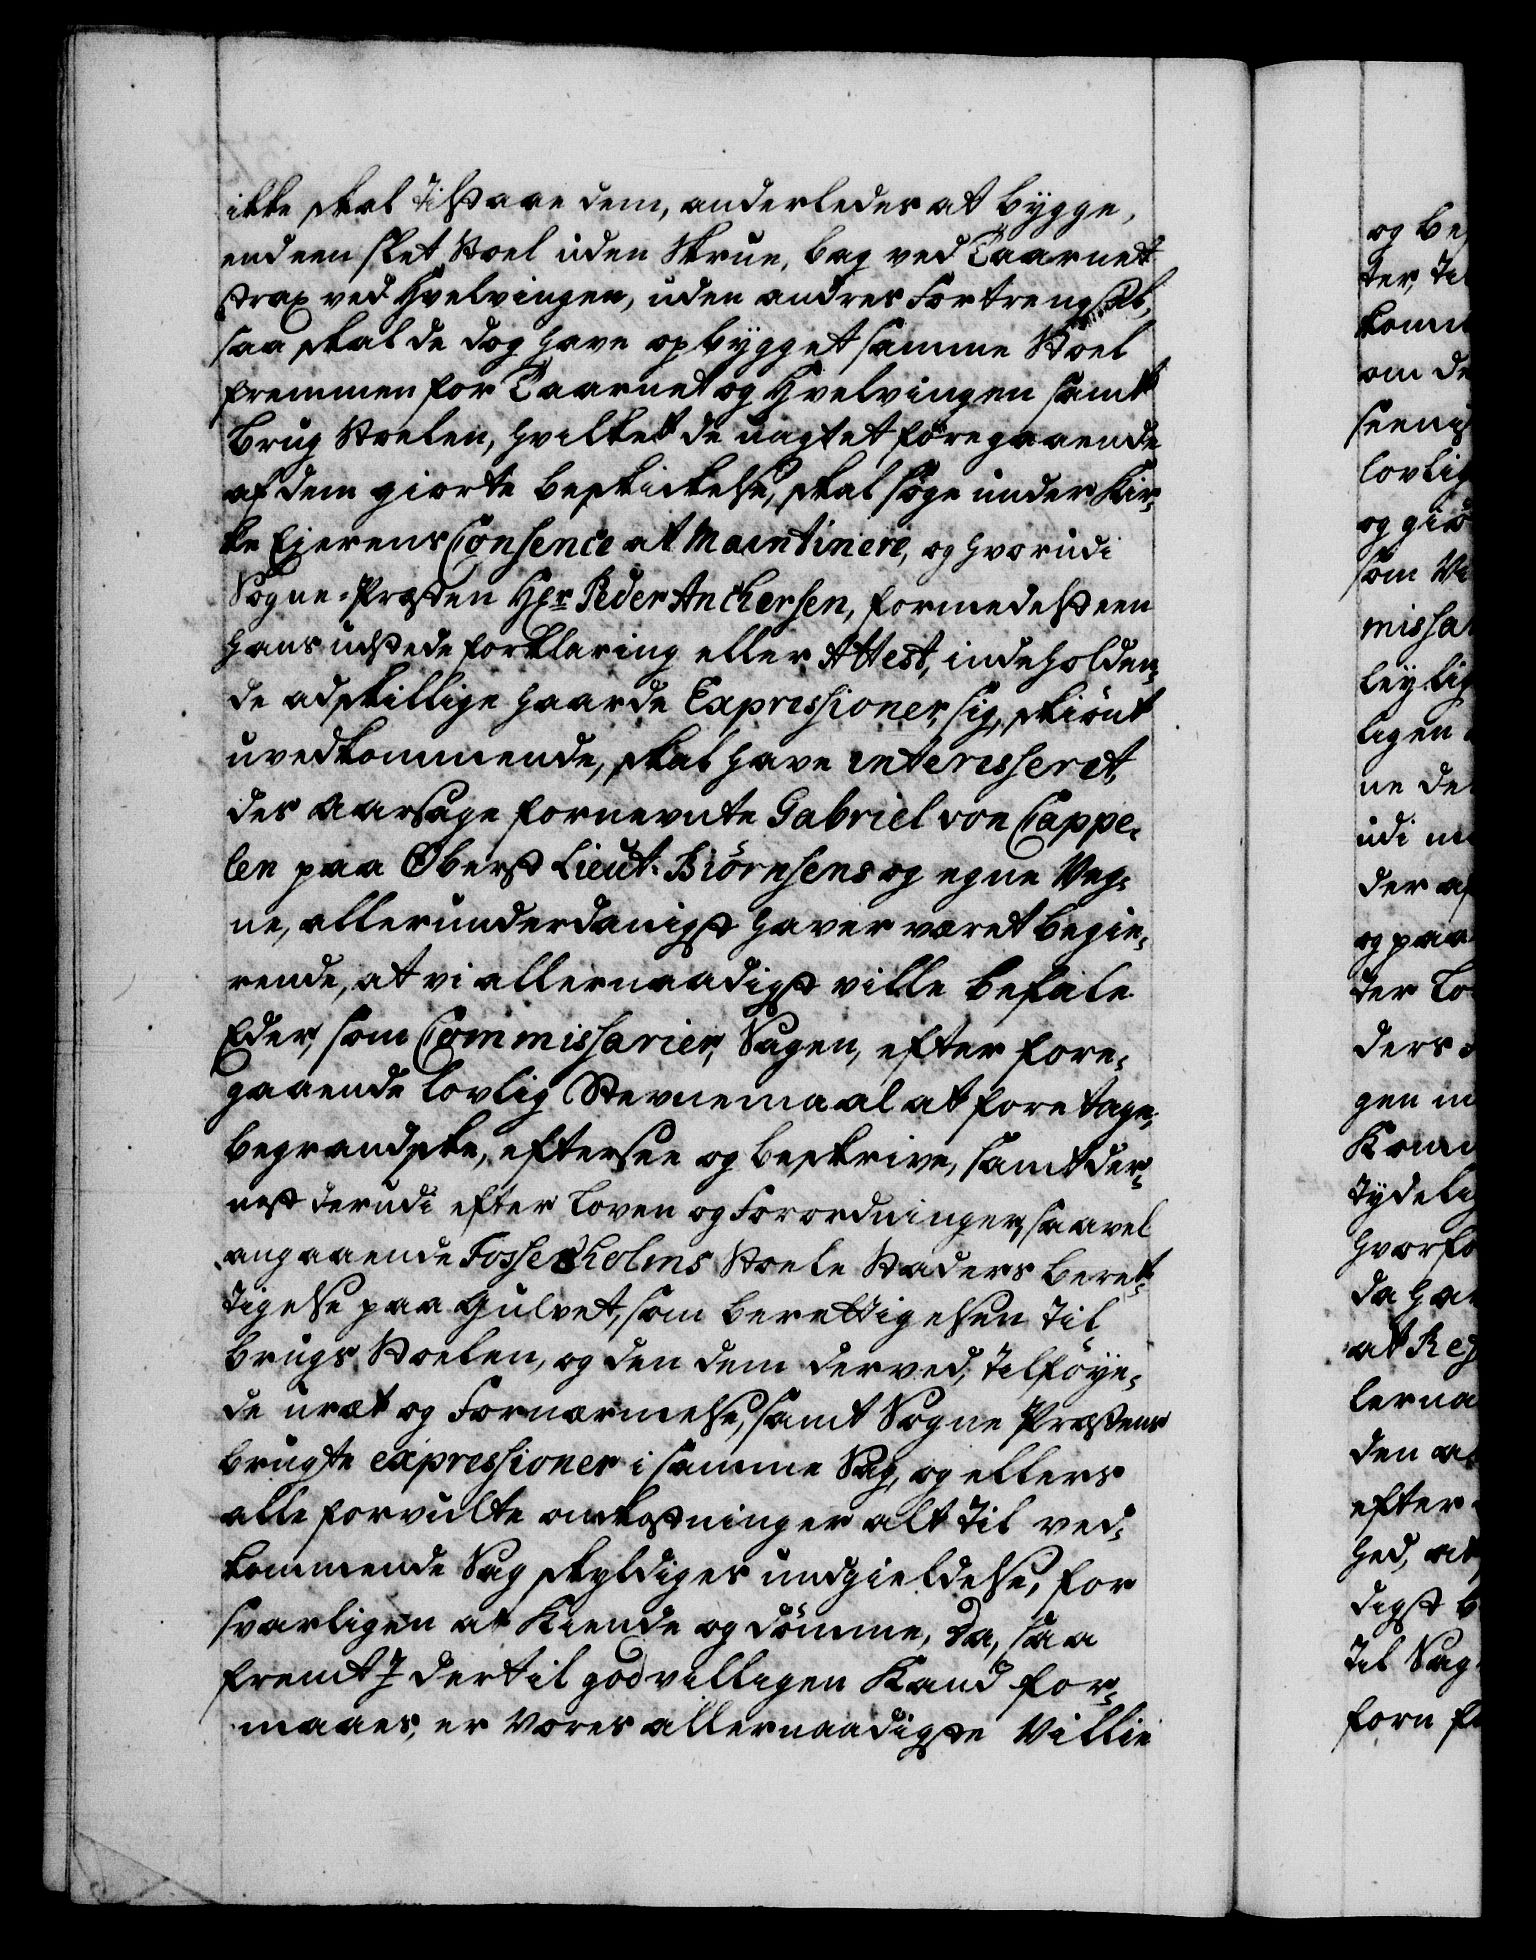 ikke skal tilstaae dem, anderledes at bygge,
end een slet Stoel uden Skrue, bag ved Taarnet
strax ved Hvelvingen, uden andres Fortrengsel,
saa skal de dog have opbygget samme Stoel
fremmen for Taarnet og Hvelvingen samt
Brug Stoelen, hvilket de uagtet foregaaende
af dem giorte beskickelse, skal søge under Kir-
ke Ejerens Consence at Maintinere, og hvorudi
Sogne-Præsten Hr Peder Anchersen, formedelst een
hans udstede forklaring eller Attest, indeholden-
de adskillige haarde Expressioner, sig, skiönt
uvedkommende, skal have interesseret,
des aarsage fornevnte Gabriel von Cappe-
len paa Oberst Lieut: Biörnsens og egne Veg-
ne, allerunderdanigst haver været begie-
rende, at vi allernaadigst ville befale
Eder, som Commissarier, Sagen, efter fore-
gaaende lovlig Stevnemaal at foretage,
begrandske, eftersee og beskrive, samt der-
nest derudi efter Loven og Forordninger, saavel
angaaende Fossesholms Stoele Staders beret-
tigelse paa Gulvet, som berettigelsen til
Brugs Stoelen, og den dem derved, tilföye-
de uræt og Fornærmelse, samt Sogne Præstens
brugte expressioner i samme Sag, og ellers
alle forvulte omkostninger alt til ved-
kommende Sag skyldiges undgieldelse, for
svarligen at Kiende og dömme, da, saa
fremt I dertil godvilligen Kand for-
maaes, er Vores allernaadigste Villie
og be
ter, til
kom
om de
lovlig
og giö
som Vi
missa
leylig
ligen
ne de
udi
der af
og paa
der Lo
ders
gen
Kom
tydelig
hvorfo
da ha
at Res
lerna
den a
efter
hed, at
digst b
til Sag
forn